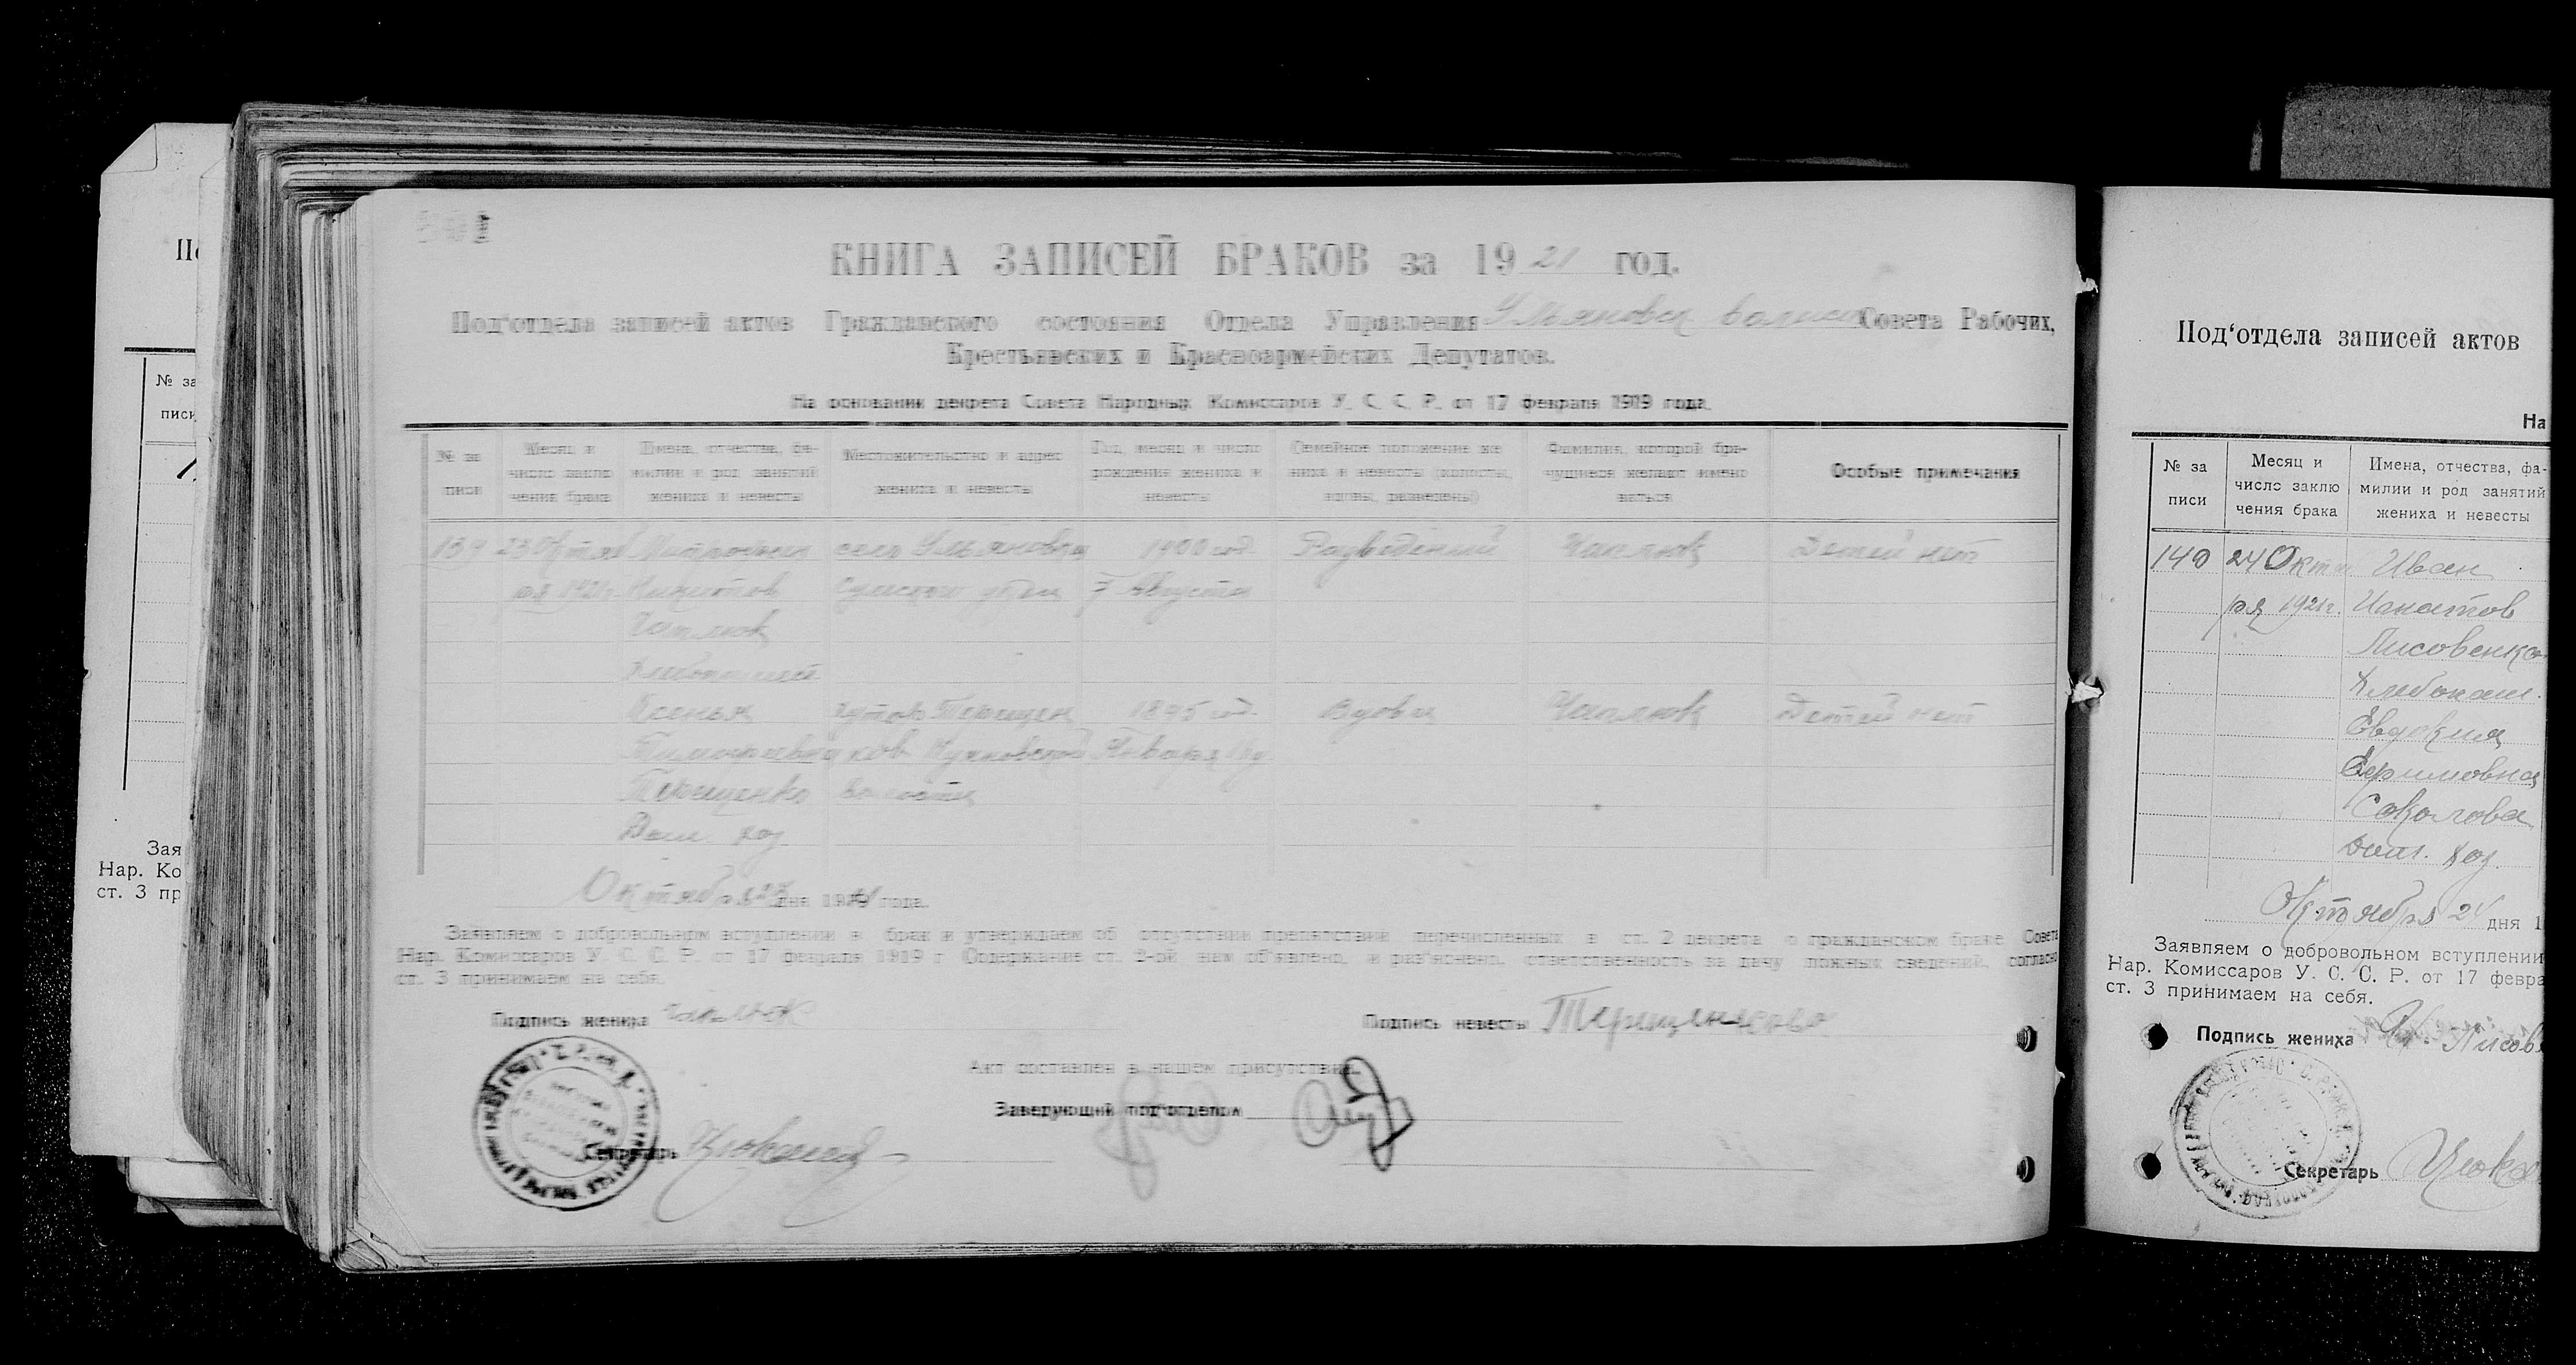 КНИГА ЗАПИСЕЙ БРАКОВ за 1921 год.
Под‘отдела записей актов Гражданского состояния Отдела Управления Ульяновск Совета Рабочих,
Крестьянских и Красноармейских Депутатов.
На основании декрета Совета Народных Комиссаров У. С. С. Р. от 17 февраля 1919 года.
№ за
писи
Месяц и
число заклю
чения брака
Имена, отчества, фа-
милии и род занятий
жениха и невесты
Местожительство и адрес
жениха и невесты
Год, месяц и число
рождения жениха и
невесты
Семейное положение же
ниха и невесты (холосты,
вдовы, разведены)
Фамилия, которой бра-
чущиеся желают имено
ваться
Особые примечания
139 23 Октяб село Ульяновка 1900 год. Разведений Чаплюк Детей нет
ря 1921г. Никитов Сумского уезда 7 Августа
Чаплюк
Ксенья хутор Терещен 1895 год. Вдова Чаплюк Детей нет
Тимофаевна ков Января
Терещенко волости
Дом. хоз.
Октября 23 дня 1921 года.
Заявляем о добровольном вступлении в брак и утверждаем об отсутствии препятствий перечисленных в ст. 2 декрета о гражданском браке Совета
Нар. Комиссаров У. С. С. Р. от 17 февраля 1919 г. Содержание ст. 2-ой нам об‘явлено, и раз‘яснено, ответственность за дачу ложных сведений, согласно
ст. 3 принимаем на себя.
Подпись жениха Чаплюк
Подпись невесты
Акт составлен в нашем присутствии.
Заведующий под‘отделом
Секретарь
Под‘отдела записей актов
На
№ за
писи
Месяц и
число заклю
чения брака
Имена, отчества, фа-
милии и род занятий
жениха и невесты
140 24 Октя Иван
ря 1921г. Игнатов
Лисовенко
Хлебопаш.
Евдокия
Ефимовна
Соколова
Дом. хоз.
Октября 24 дня 1
Заявляем о добровольном вступлении
Нар. Комиссаров У. С. С. Р. от 17 февра
ст. 3 принимаем на себя.
Подпись жениха
Секретарь
№ за
писи
Зая
Нар. Ко
ст. 3 пр